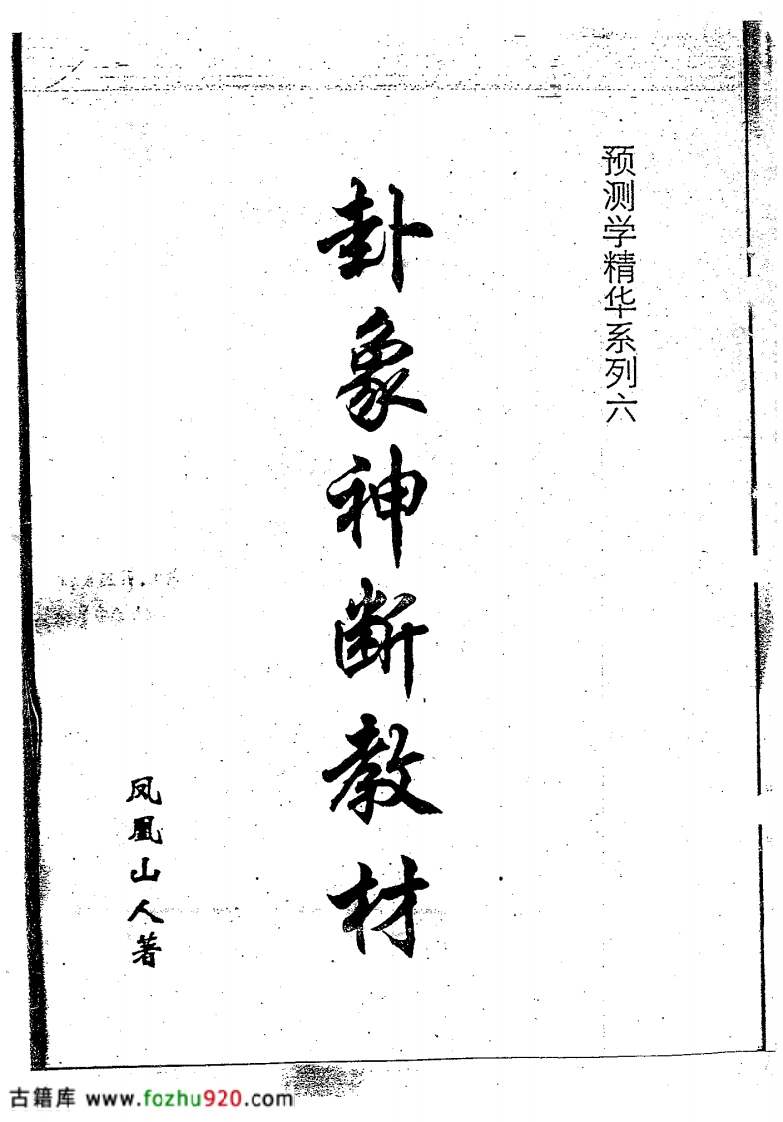 预测学精华系列六
卦象神断教材
凤凰山人著
古籍库 www.fozhu920.com